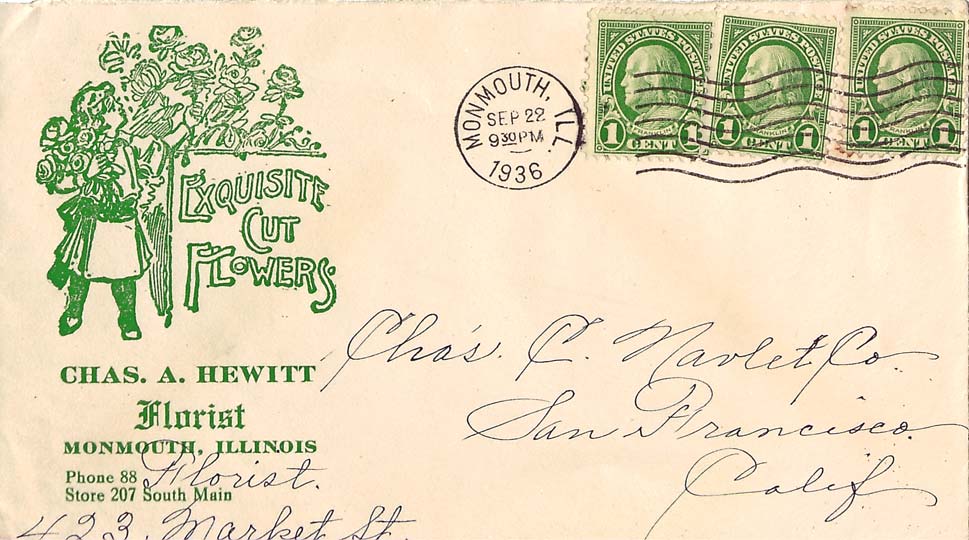 EXQUISITE
CUT
FLOWERS
CHAS. A. HEWITT
Florist
MONMOUTH, ILLINOIS
Phone 88
Store 207 South Main
MONMOUTH, ILL.
SEP 22
9 30 PM
1936
UNITED STATES POSTAGE
FRANKLIN
1 CENT 1
UNITED STATES POSTAGE
FRANKLIN
1 CENT 1
UNITED STATES POSTAGE
FRANKLIN
1 CENT 1
Chas. C. Navlet Co.
San Francisco.
Calif
Florist.
423 Market St.